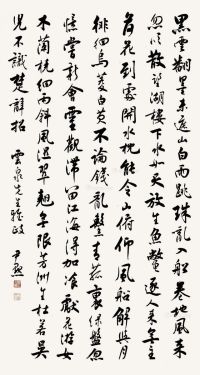 黑雲翻墨未遮山白雨跳珠亂入船卷地風來
忽吹散望湖樓下水如天放生魚鱉逐人來無主
荷花到處開水枕能令山俯仰風船解與月
徘徊烏菱白芡不論錢亂繫青菰裹綠盤忽
憶嘗新會靈觀滯留江海得加餐獻花游女
木蘭橈細雨斜風濕翠翹無限芳洲生杜若吳
兒不識楚辭招 雲泉先生雅政 尹默